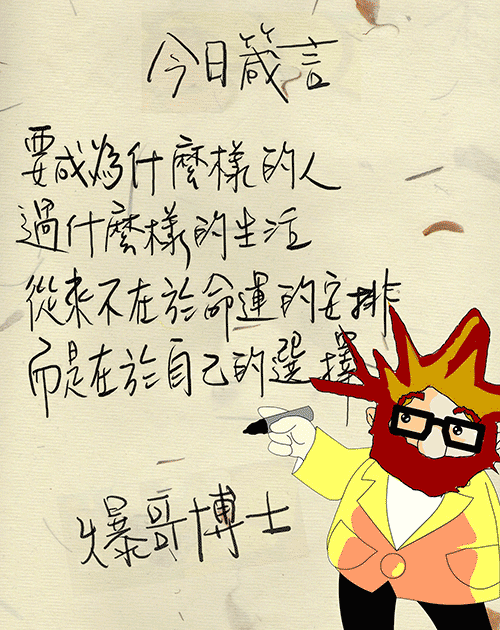 今日箴言
要成為什麼樣的人
過什麼樣的生活
從來不在於命運的安排
而是在於自己的選擇
爆哥博士